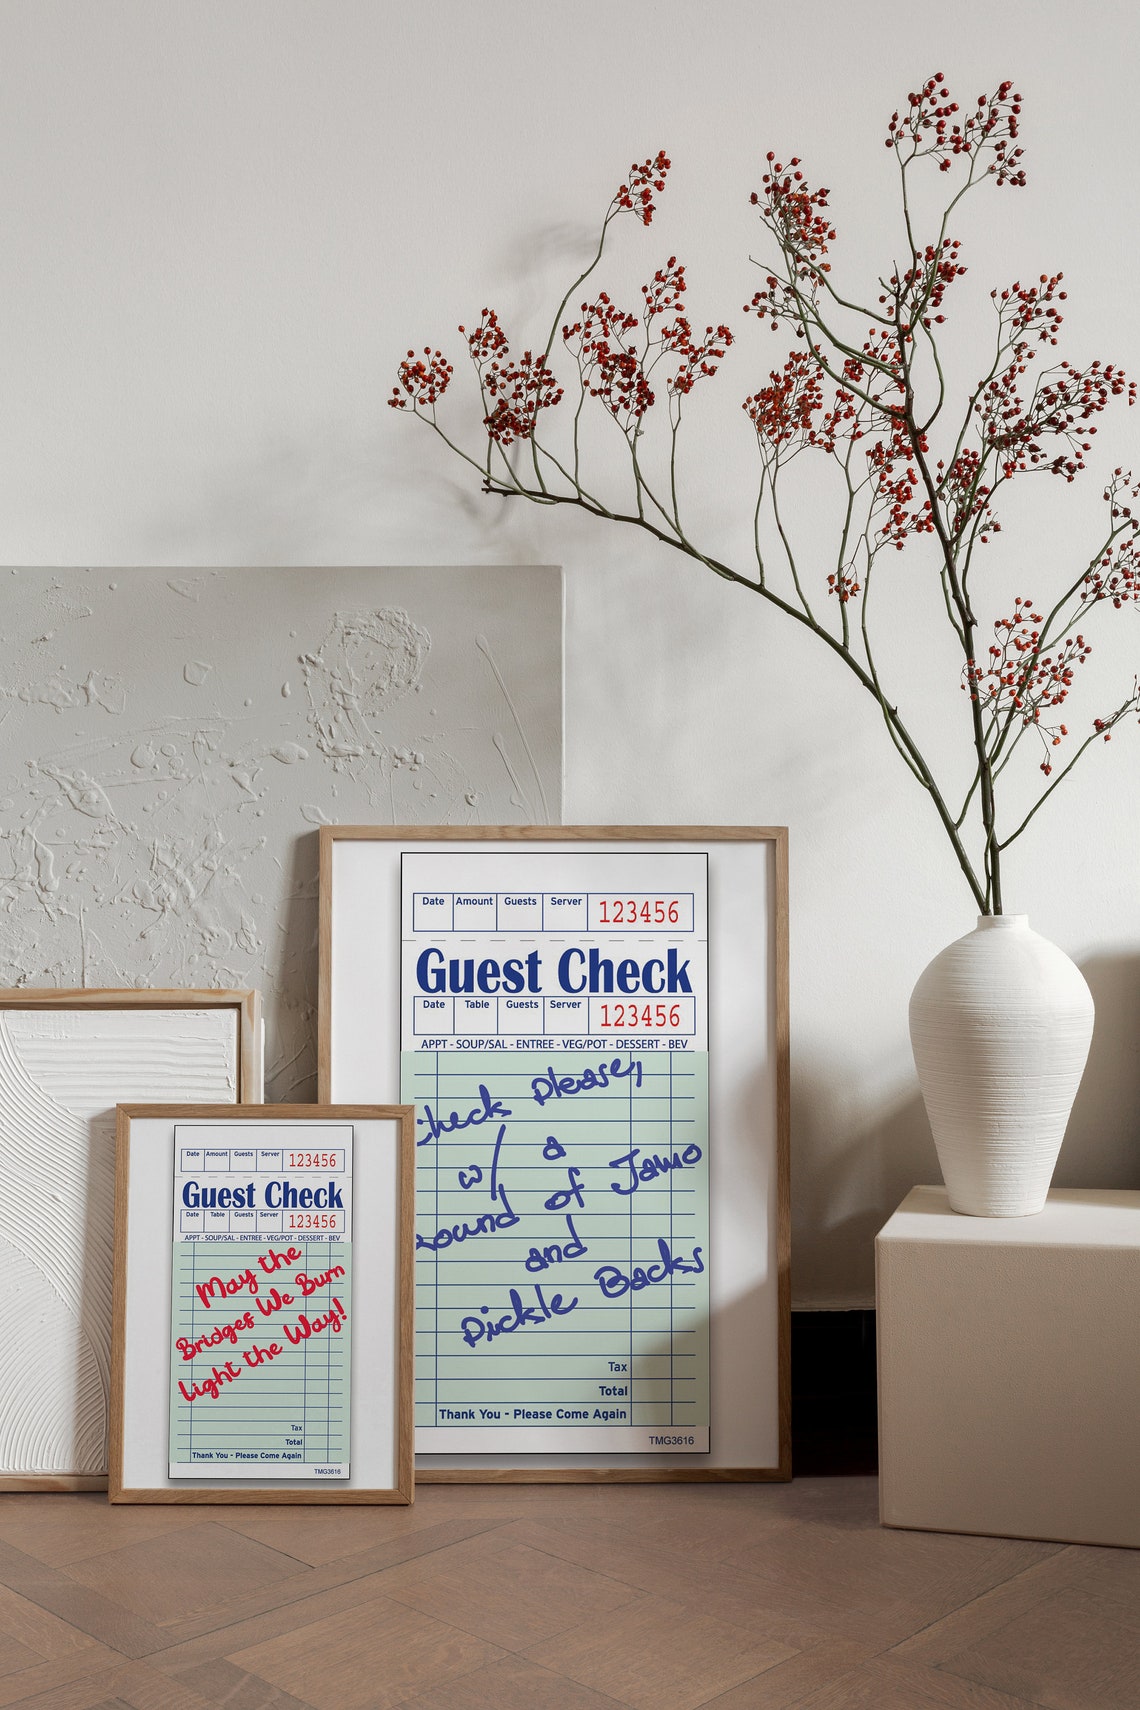 Date Amount Guests Server 123456
Guest Check
Date Table Guests Server 123456
APPT - SOUP/SAL - ENTREE - VEG/POT - DESSERT - BEV
Check please,
w/ a
Round of Jamo
and
Pickle Backs
Tax
Total
Thank You - Please Come Again
TMG3616
Date Amount Guests Server 123456
Guest Check
Date Table Guests Server 123456
APPT - SOUP/SAL - ENTREE - VEG/POT - DESSERT - BEV
May the
Bridges We Burn
Light the Way!
Tax
Total
Thank You - Please Come Again
TMG3616